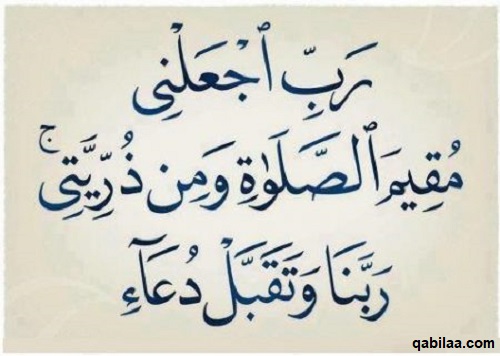 رَبِّ ٱجْعَلْنِى
مُقِيمَ ٱلصَّلَوٰةِ وَمِن ذُرِّيَّتِى ۚ
رَبَّنَا وَتَقَبَّلْ دُعَآءِ
qabilaa.com